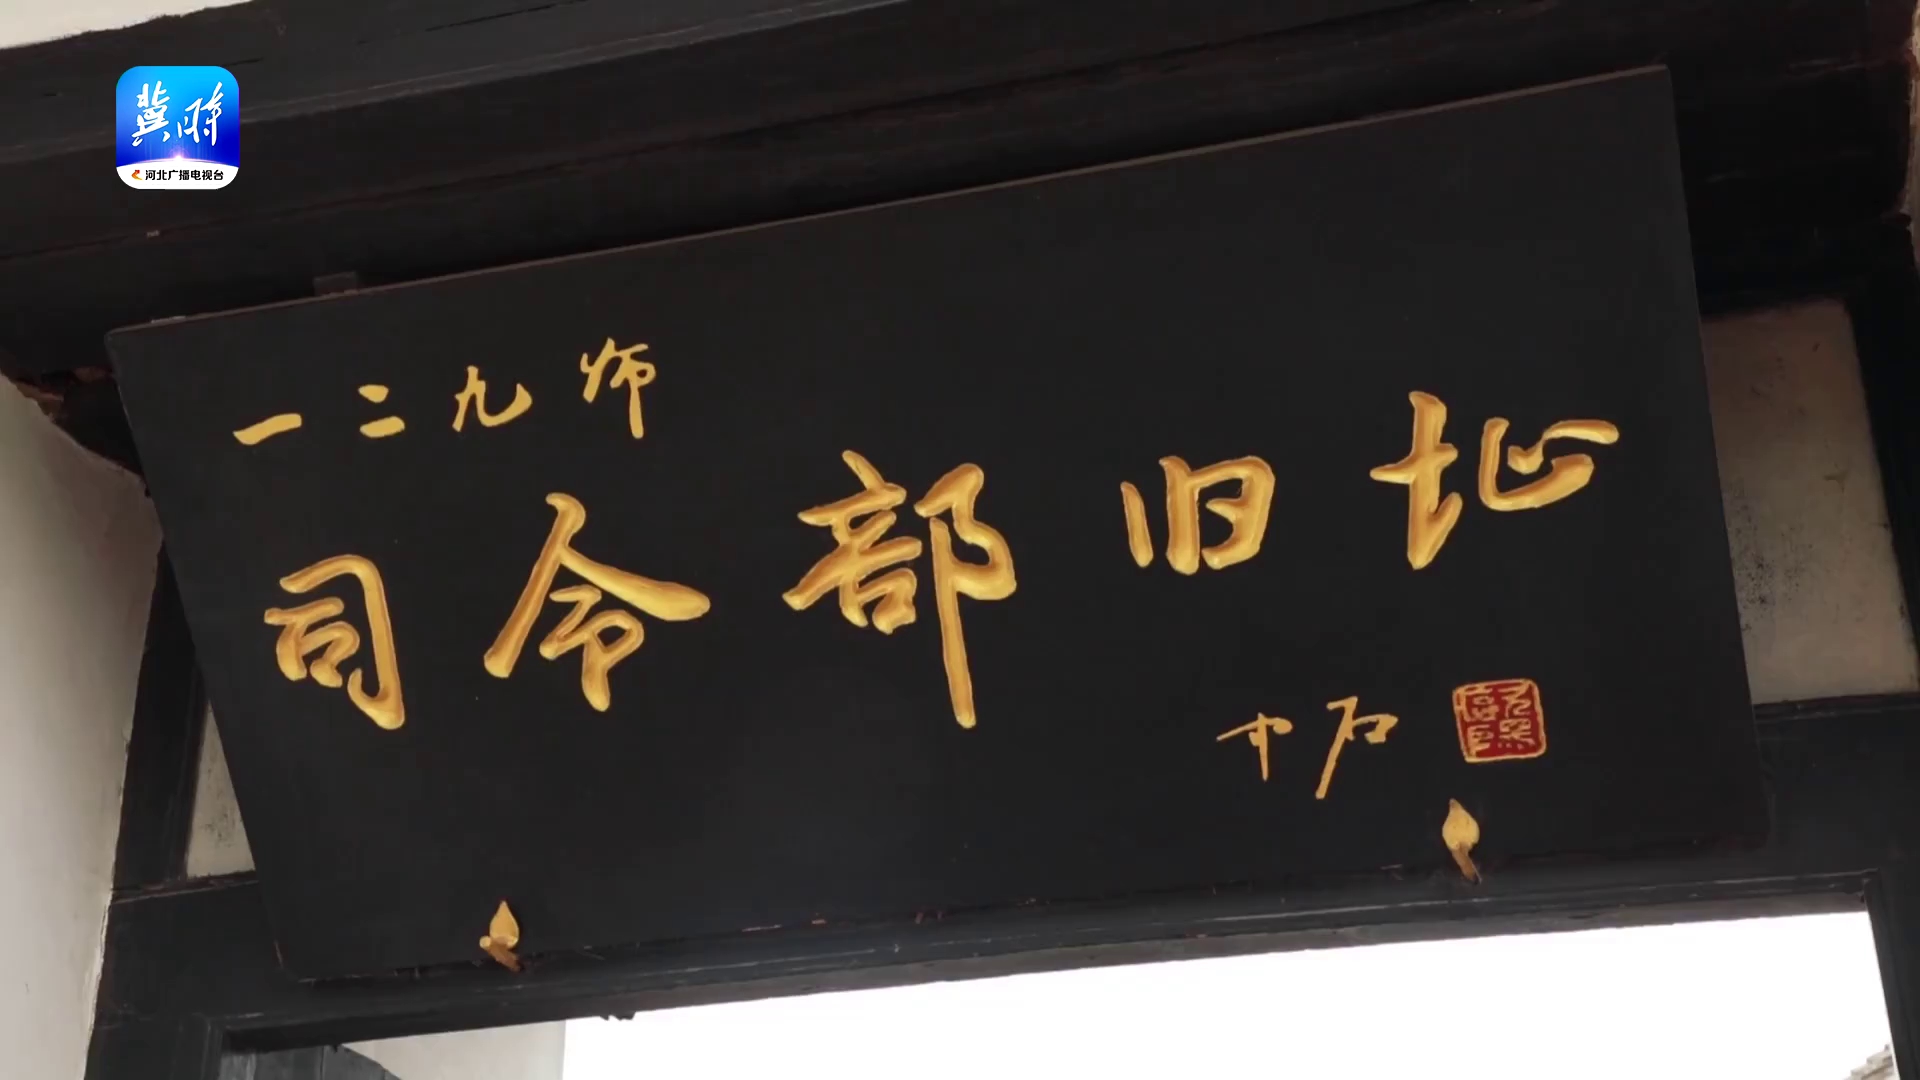 冀时
河北广播电视台
一二九师
司令部旧址
中石